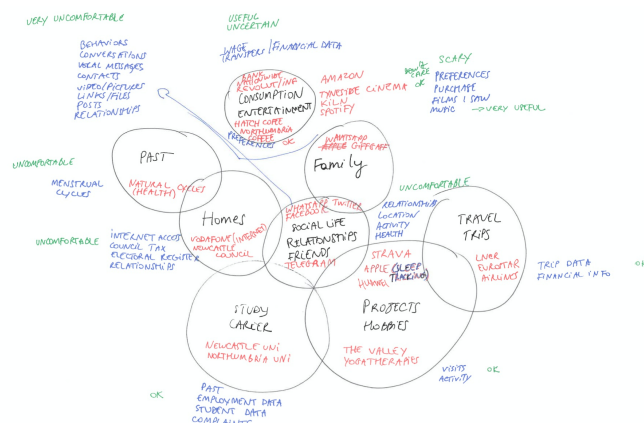 VERY UNCOMFORTABLE
USEFUL
UNCERTAIN
BEHAVIORS
CONVERSATIONS
VOCAL MESSAGES
CONTACTS
VIDEO/PICTURES
LINKS/FILES
POSTS
RELATIONSHIPS
WAGE
TRANSFERS/FINANCIAL DATA
BANK
NATIONWIDE
CONSUMPTION
ENTERTAINMENT
HATCH COFEE
NORTHUMBRIA
COFFEE
OK
PREFERENCES
AMAZON
TYNESIDE CINEMA
KILN
SPOTIFY
DON'T
CARE
OK
SCARY
PREFERENCES
PURCHASE
FILMS I SAW
MUSIC → VERY USEFUL
PAST
NATURAL CYCLES
(HEALTH)
UNCOMFORTABLE
MENSTRUAL
CYCLES
WHATSAPP
APPLE GIFFGAFF
Family
Homes
VODAFONE (INTERNET)
NEWCASTLE
COUNCIL
UNCOMFORTABLE
INTERNET ACCESS
COUNCIL TAX
ELECTORAL REGISTER
RELATIONSHIPS
WHATSAPP TWITTER
FACEBOOK
SOCIAL LIFE
RELATIONSHIPS
FRIENDS
TELEGRAM
UNCOMFORTABLE
RELATIONSHIP
LOCATION
ACTIVITY
HEALTH
TRAVEL
TRIPS
LNER
EUROSTAR
AIRLINES
TRIP DATA
FINANCIAL INFO
STRAVA
APPLE (SLEEP
TRACKING)
HUAWEI
PROJECTS
HOBBIES
THE VALLEY
YOGATHERAPIES
VISITS
ACTIVITY
OK
STUDY
CAREER
NEWCASTLE UNI
NORTHUMBRIA UNI
OK
PAST
EMPLOYMENT DATA
STUDENT DATA